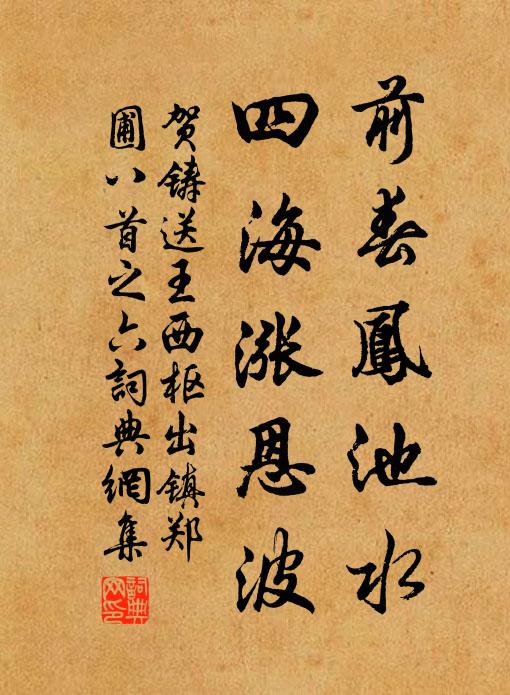 前春鳳池水
四海漲恩波
贺鑄送王西枢出镇郑
圃八首之六詞典網集
詞典网印